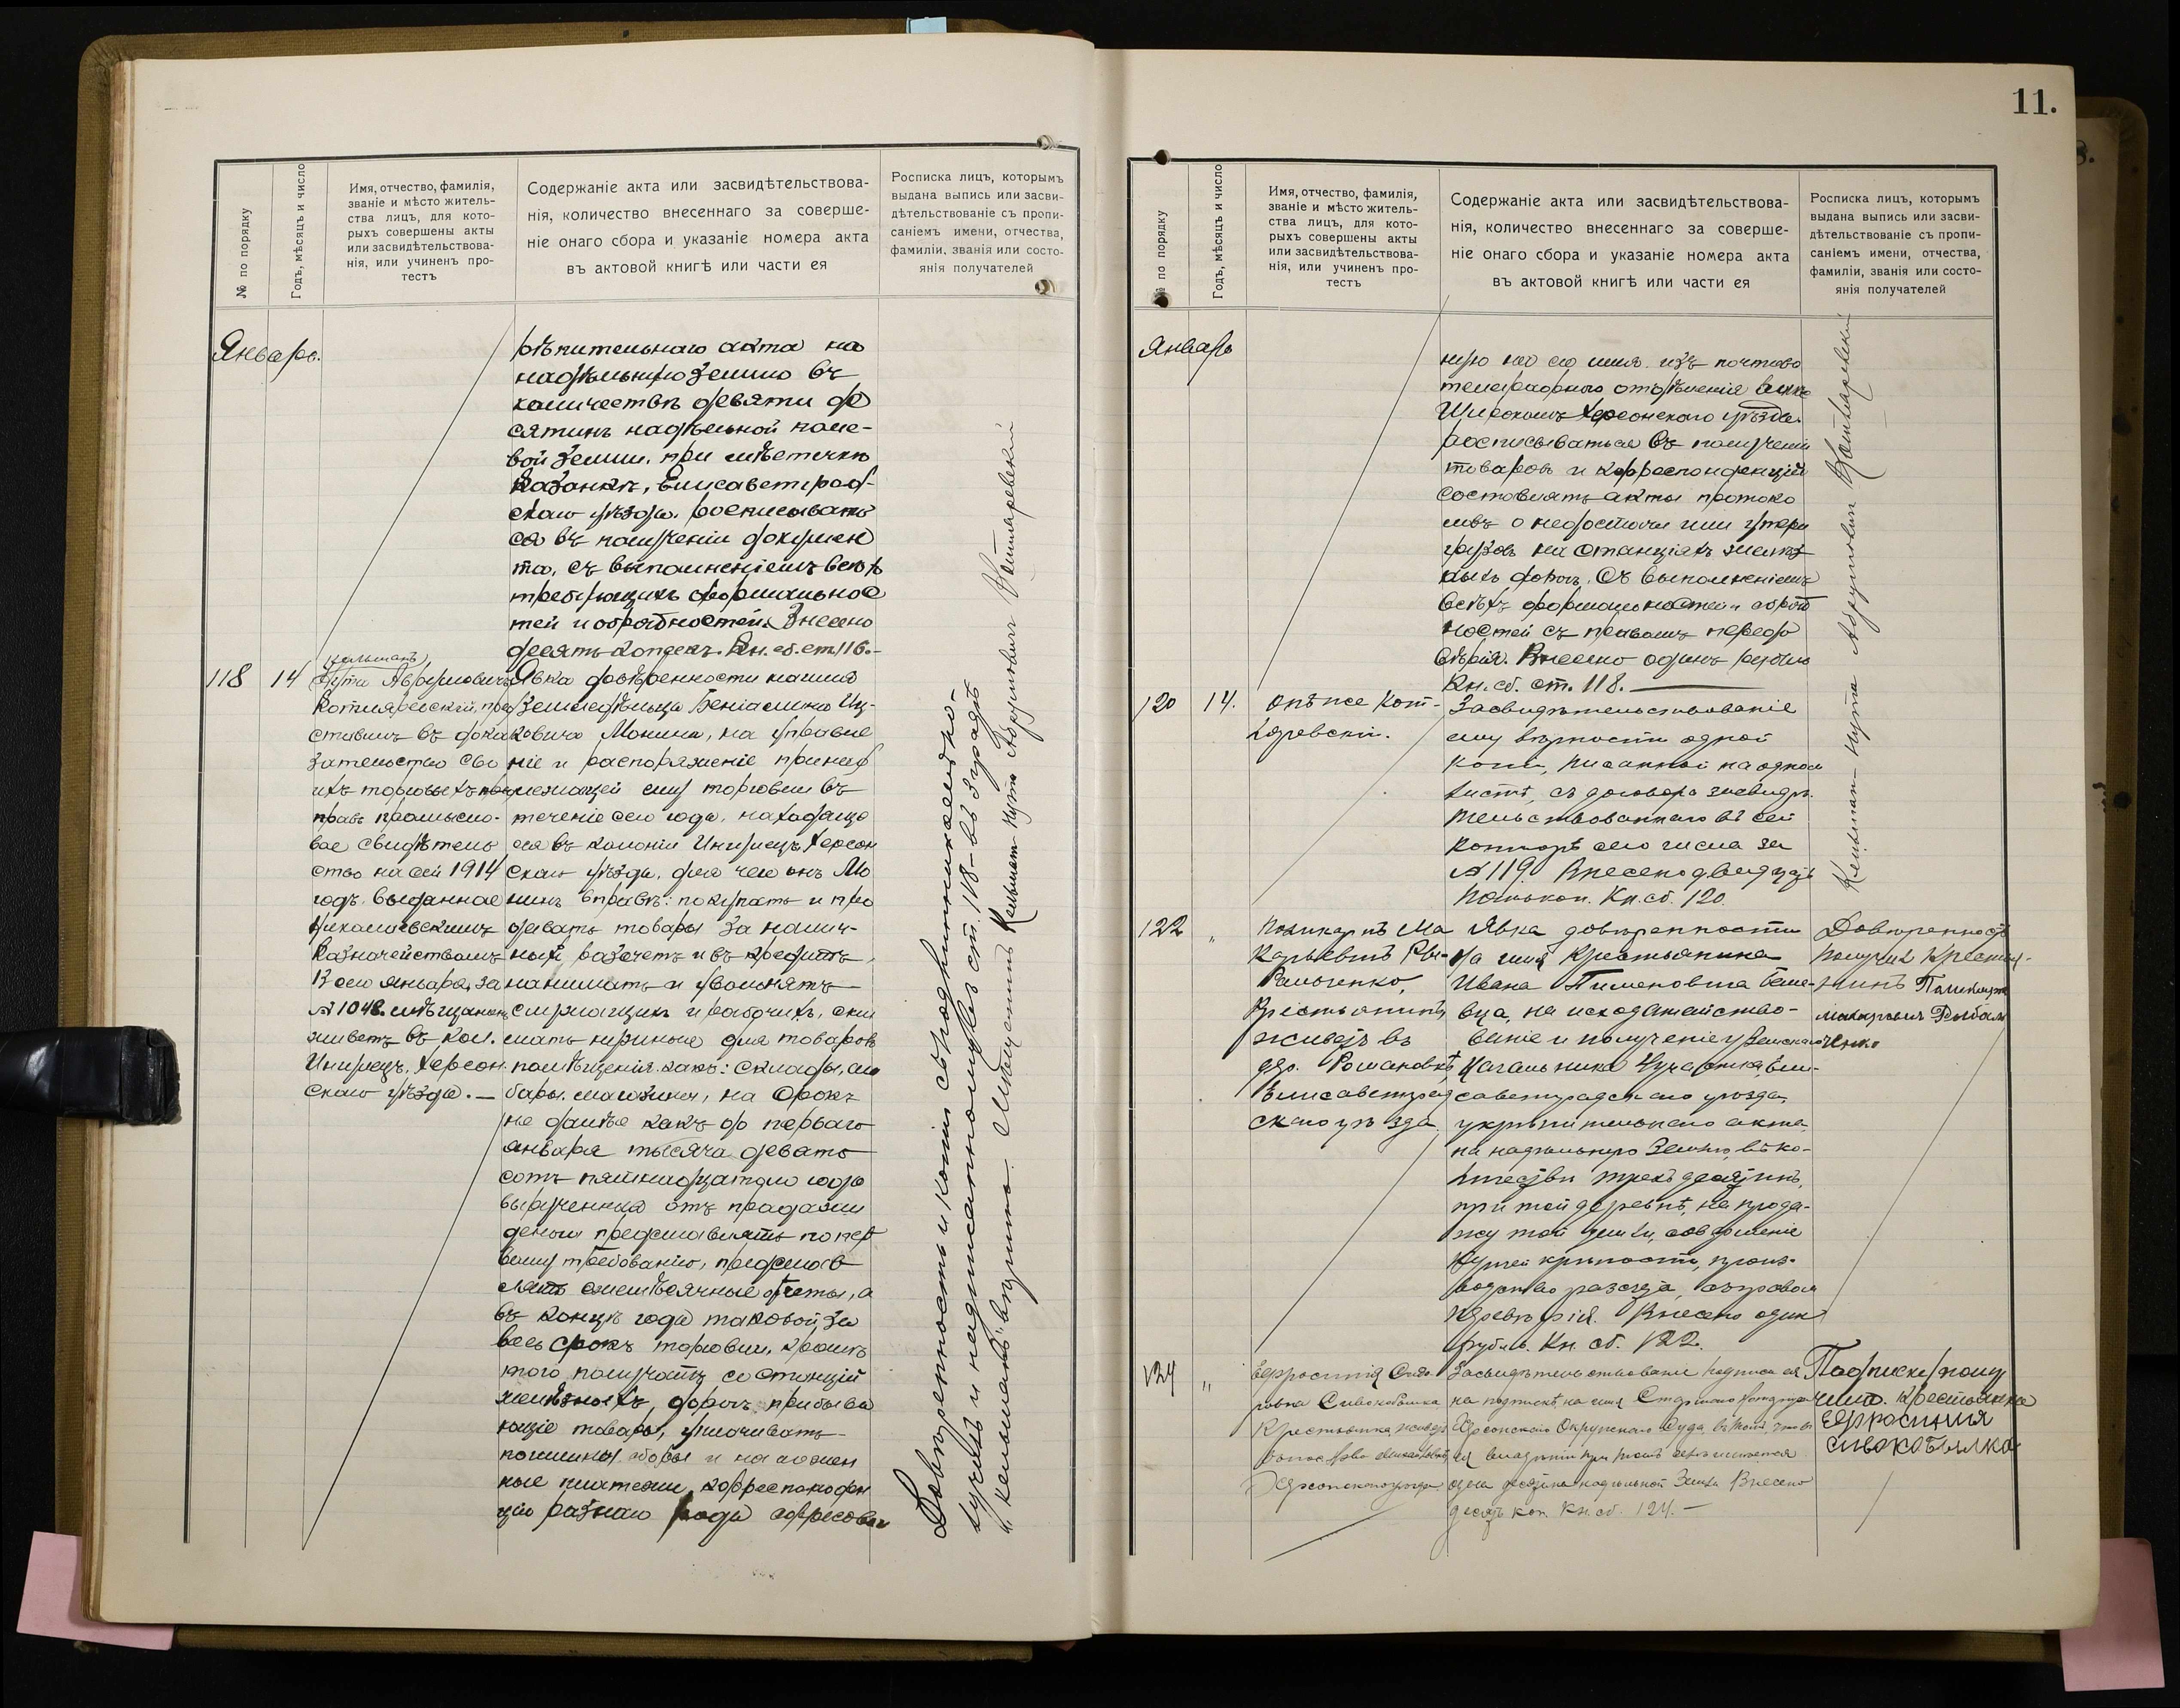 11.
№ по порядку
Годъ, мѣсяцъ и число
Имя, отчество, фамилія,
званіе и мѣсто житель-
ства лицъ, для кото-
рыхъ совершены акты
или засвидѣтельствова-
нія, или учиненъ про-
тестъ
Содержаніе акта или засвидѣтельствова-
нія, количество внесеннаго за соверше-
ніе онаго сбора и указаніе номера акта
въ актовой книгѣ или части ея
Росписка лицъ, которымъ
выдана выпись или засви-
дѣтельствованіе съ пропи-
саніемъ имени, отчества,
фамиліи, званія или состо-
янія получателей
Январь.
рѣпительнаго акта на
надѣльную землю въ
количествѣ девяти де
сятинъ надѣльной поле-
вой земли, при мѣстечкѣ
Казанкѣ, Елисаветград-
скаго уѣзда, росписывать
ся въ полученіи докумен
та, съ выполненіемъ всѣхъ
требующихъ формальнос
тей и обрядностей. Внесено
десять копѣекъ. Кн. сб. ст. 116.-
118
14
Кельманъ
Нута Абрумовичъ
Котляревскій, пред
ставилъ въ дока
зательство сво
ихъ торговыхъ
правъ промысло-
вое свидѣтель
ство на сей 1914
годъ, выданное
Николаевскимъ
Казначействомъ
января, за
№ 1048. мѣщанинъ
живетъ въ кол.
Ингулецъ, Херсон
скаго уѣзда. —
Явка довѣренности на имя
земледѣльца Беніамина Иц-
ковича Монина, на управле
ніе и распоряженіе принад
лежащей ему торговли въ
теченіе сего года, находяще
ся въ колоніи Ингулецъ Херсон
скаго уѣзда, для чего онъ Мо
нинъ вправѣ: покупать и про
давать товары за налич-
ный разсчетъ и въ кредитъ,
нанимать и увольнять
служащихъ и рабочихъ, сни
мать нужныя для товаровъ
помѣщенія какъ: склады, ам
бары, магазины, на срокъ
не далѣе какъ до перваго
января тысяча девять
сотъ пятнадцатаго года
вырученныя отъ продажи
деньги предоставлять по пер
вому требованію, предостав
лять ежемѣсячные отчеты, а
въ концѣ года таковой за
весь срокъ торговли, кромѣ
того получать со станцій
желѣзныхъ дорогъ прибыва
ющіе товары, уплачивать
пошлины сборы и наложен
ные платежи, корреспонден
цію разнаго рода адресован
Довѣренность и копію съ
лучилъ и надписанному въ ст. 118 въ 3 градѣ
„Кельманъ" вѣрно. Мѣщанинъ Кельман Нута Абрумович Котляревский
№ по порядку
Годъ, мѣсяцъ и число
Имя, отчество, фамилія,
званіе и мѣсто житель-
ства лицъ, для кото-
рыхъ совершены акты
или засвидѣтельствова-
нія, или учиненъ про-
тестъ
Содержаніе акта или засвидѣтельствова-
нія, количество внесеннаго за соверше-
ніе онаго сбора и указаніе номера акта
въ актовой книгѣ или части ея
Росписка лицъ, которымъ
выдана выпись или засви-
дѣтельствованіе съ пропи-
саніемъ имени, отчества,
фамиліи, званія или состо-
янія получателей
Январь
ную на его имя изъ почтово
телеграфнаго отдѣленія
Широкомъ Херсонскаго уѣзда.
росписываться въ полученіи
товаровъ и корреспонденціи
составлять акты протоко
ловъ о недостачи или утери
грузовъ на станціяхъ желѣз
ныхъ дорогъ. Съ выполненіемъ
всѣхъ формальностей и обряд
ностей съ правомъ передо
вѣрія. Внесено одинъ рубль
Кн. сб. ст. 118. —
120
14.
онъ же Кот-
ляревскій.
Засвидѣтельствованіе
ему вѣрности одной
копіи, писанной на одномъ
листѣ, съ договора засвидѣ-
тельствованнаго въ сей
конторѣ сего числа за
№ 119 Внесено двадцать
коп. Кн. сб. 120.
Кельман Нута Абрумович Котляревский
122
"
Поликарпъ Ма
карьевичъ Ры-
бальченко,
Крестьянинъ,
живетъ въ
дер. Романовкѣ,
Елисаветград
скаго уѣзда.
Явка довѣренности
на имя Крестьянина
Ивана Пименовича
на исходатайство-
ваніе и полученіе у Земскаго
Начальника участка, Ели-
саветградскаго уѣзда,
укрѣпительнаго акта
на надѣльную землю, въ ко-
личествѣ трехъ десятинъ,
при той деревнѣ, на прода-
жу той земли, совершеніе
купчей крѣпости, произ-
водство разсчета, съ правомъ
передовѣрія. Внесено одинъ
рубль. Кн. сб. 122.
Довѣренность
получилъ Крестья-
нинъ Поликарпъ
Макарьевич Рыбаль
ченко
124
"
Ефросинія
Сивокобылка
Крестьянка живетъ
Херсонскаго уѣзда
Засвидѣтельствованіе подписи ея
на подпискѣ на имя Старшаго Нотаріуса
Херсонскаго Окружнаго Суда въ томъ, что въ
ея владѣніи
одна десятина надѣльной земли. Внесено
десять коп. Кн. сб. 124. —
Подписку полу
чила. крестьянка
Ефросиния
сивокобылка